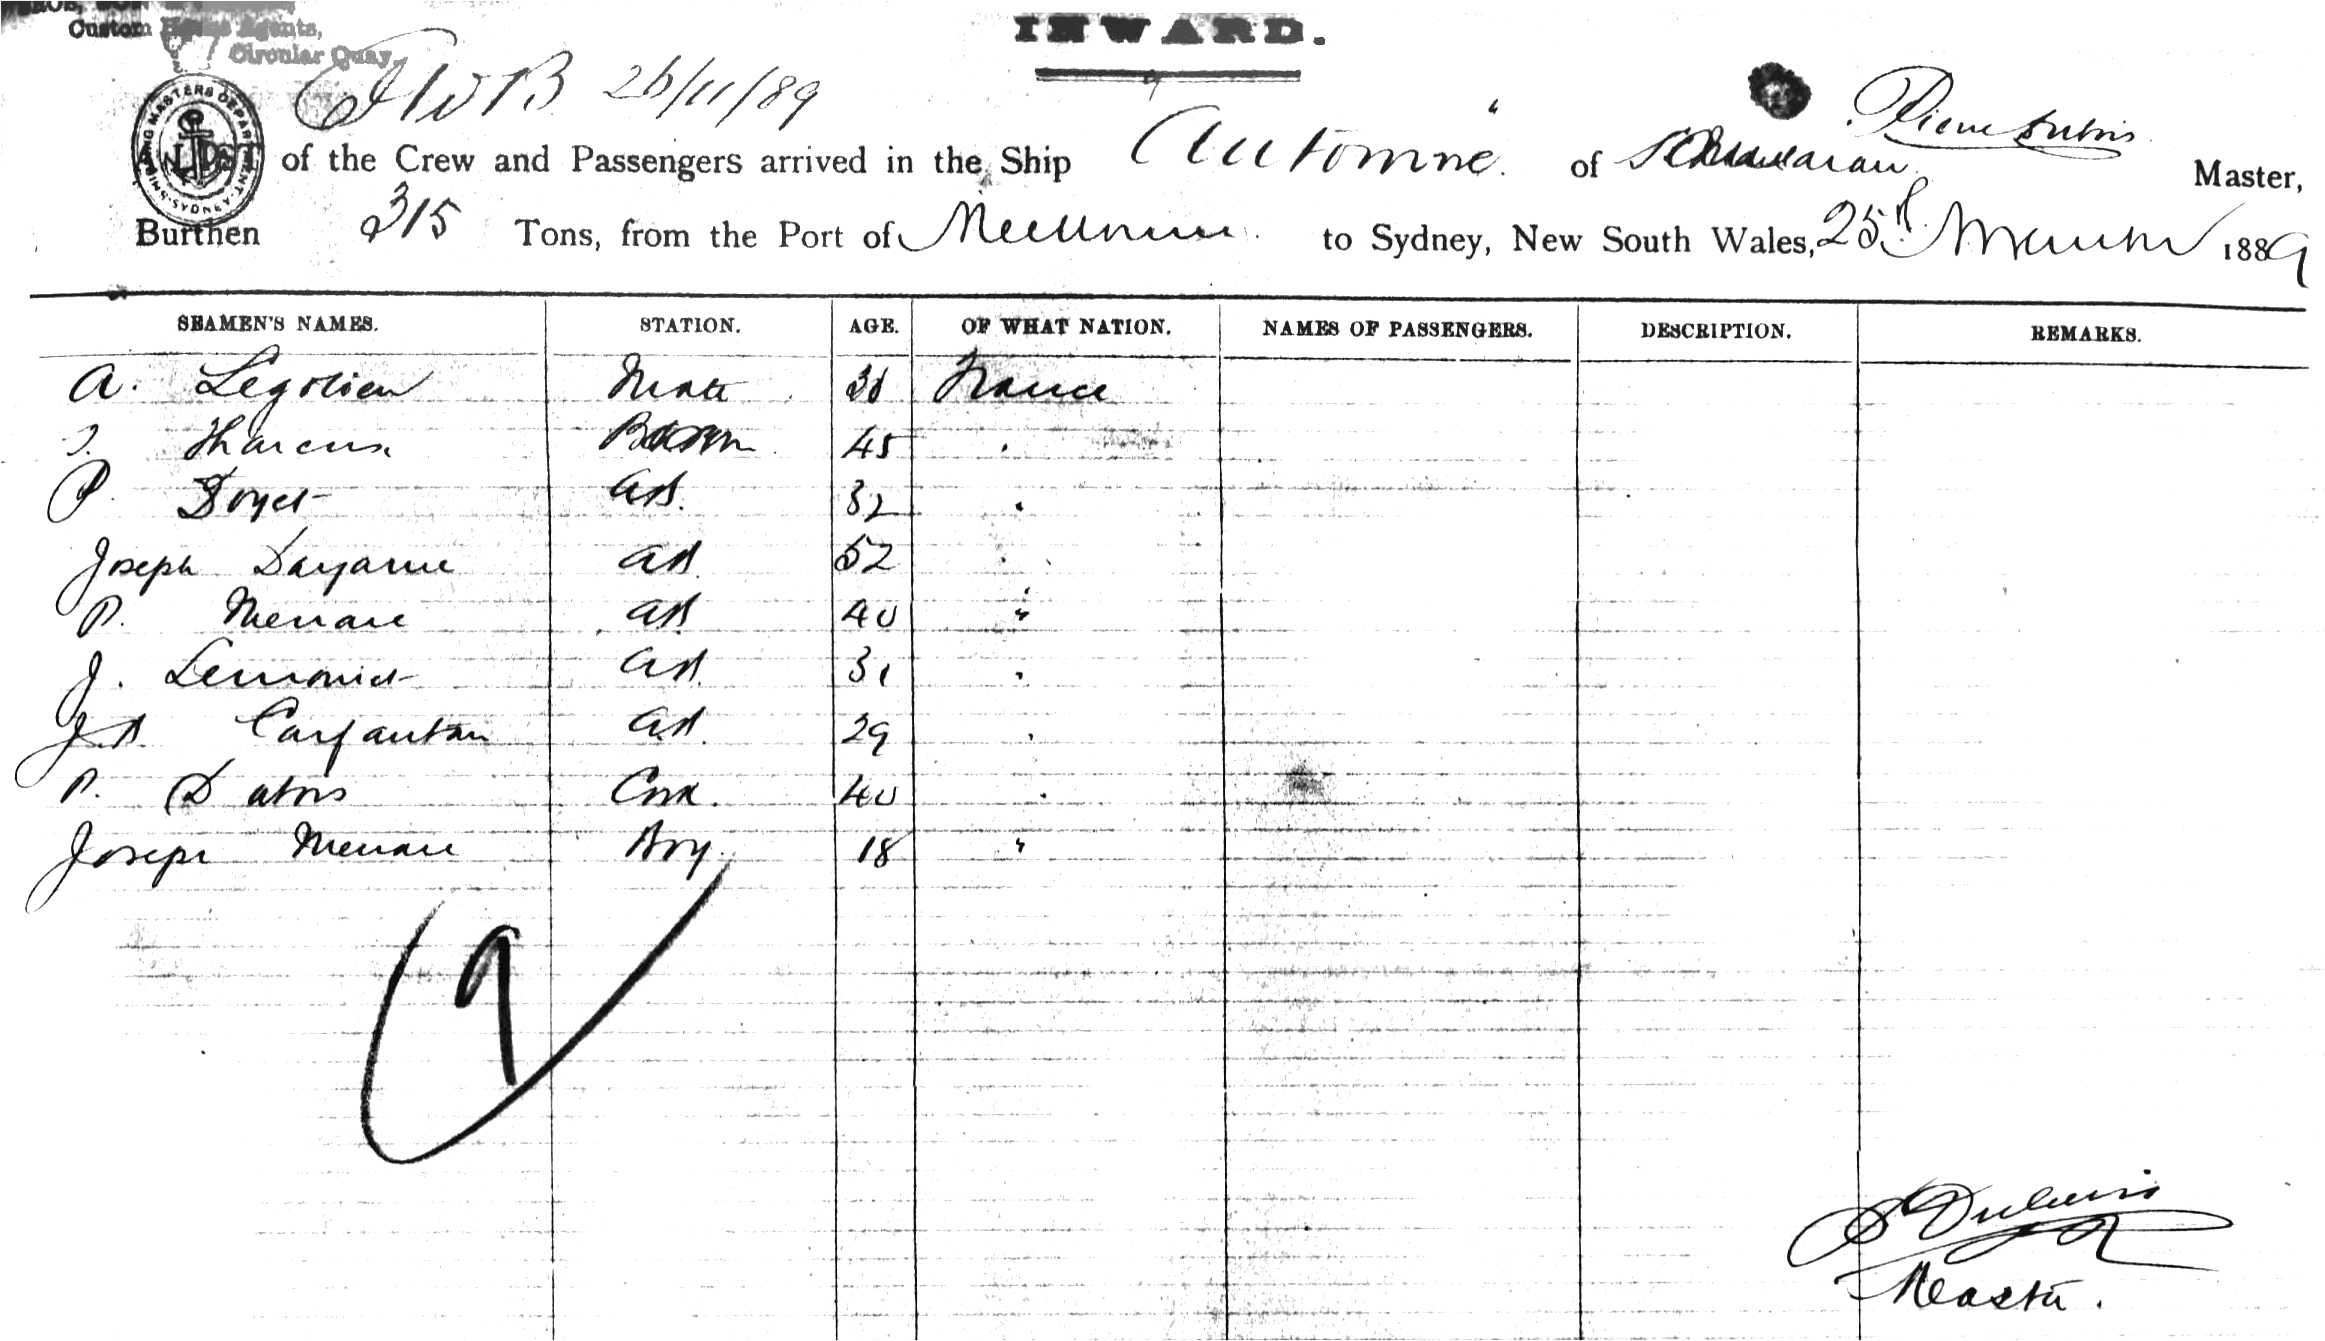 Custom House Agents,
Circular Quay,
INWARD.
26/11/89
SHIPPING MASTERS DEPARTMENT SYDNEY
A LIST of the Crew and Passengers arrived in the Ship "Automne" of Pierre Dubois Master,
Burthen 315 Tons, from the Port of Melbourne to Sydney, New South Wales, 25th November 1889
SEAMEN'S NAMES. STATION. AGE. OF WHAT NATION. NAMES OF PASSENGERS. DESCRIPTION. REMARKS.
A. Legolien Mate France
Tharcus Bosun 45 "
P. Doyet AB. 32 "
Joseph Dayarne AB. 52 "
P. Menare AB. 40 "
J. Lemoniet AB. 31 "
J.B. Carfantan AB. 29 "
P. Dubois Cook. 40 "
Joseph Menare Boy. 18 "
9
P Dubois
Master.